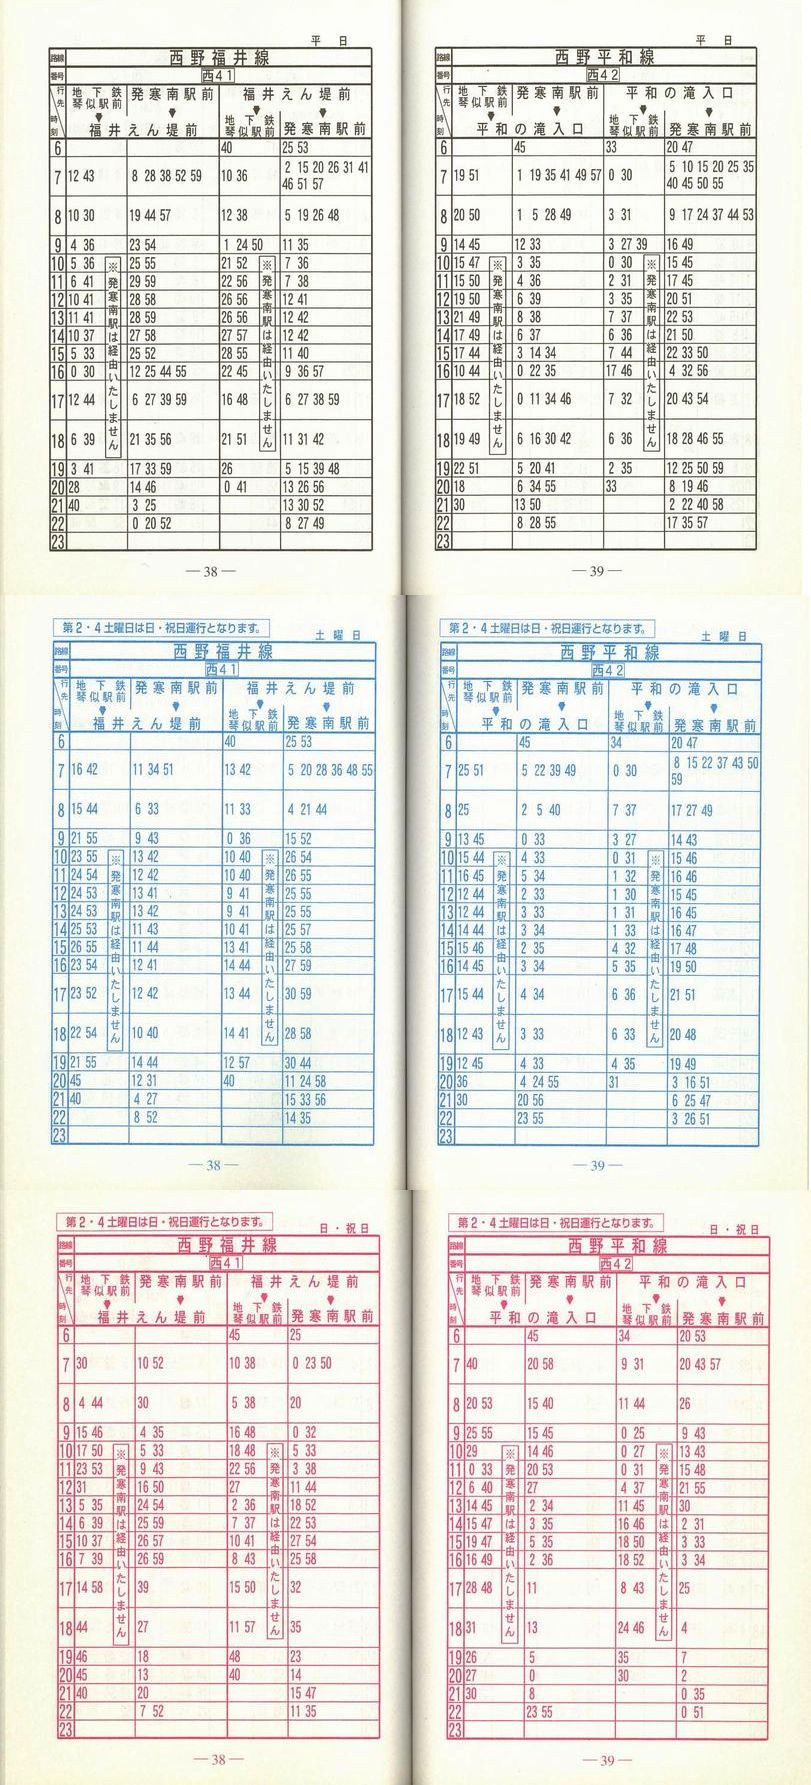 平日
路線 西野福井線
番号 西41
行先 時刻
地下鉄琴似駅前 ▼ 福井えん堤前
発寒南駅前 ▼ 福井えん堤前
福井えん堤前 ▼ 地下鉄琴似駅前
福井えん堤前 ▼ 発寒南駅前
6 | | | 40 | 25 53
7 | 12 43 | 8 28 38 52 59 | 10 36 | 2 15 20 26 31 41 46 51 57
8 | 10 30 | 19 44 57 | 12 38 | 5 19 26 48
9 | 4 36 | 23 54 | 1 24 50 | 11 35
10 | 5 36 | 25 55 | 21 52 | 7 36
11 | 6 41 | 29 59 | 22 56 | 7 38
12 | 10 41 | 28 58 | 26 56 | 12 41
13 | 11 41 | 28 59 | 26 56 | 12 42
14 | 10 37 | 27 58 | 27 57 | 12 42
15 | 5 33 | 25 52 | 28 55 | 11 40
16 | 0 30 | 12 25 44 55 | 22 45 | 9 36 57
17 | 12 44 | 6 27 39 59 | 16 48 | 6 27 38 59
18 | 6 39 | 21 35 56 | 21 51 | 11 31 42
19 | 3 41 | 17 33 59 | 26 | 5 15 39 48
20 | 28 | 14 46 | 0 41 | 13 26 56
21 | 40 | 3 25 | | 13 30 52
22 | | 0 20 52 | | 8 27 49
23
※発寒南駅は経由いたしません
※発寒南駅は経由いたしません
― 38 ―
平日
路線 西野平和線
番号 西42
行先 時刻
地下鉄琴似駅前 ▼ 平和の滝入口
発寒南駅前 ▼ 平和の滝入口
平和の滝入口 ▼ 地下鉄琴似駅前
平和の滝入口 ▼ 発寒南駅前
6 | | 45 | 33 | 20 47
7 | 19 51 | 1 19 35 41 49 57 | 0 30 | 5 10 15 20 25 35 40 45 50 55
8 | 20 50 | 1 5 28 49 | 3 31 | 9 17 24 37 44 53
9 | 14 45 | 12 33 | 3 27 39 | 16 49
10 | 15 47 | 3 35 | 0 30 | 15 45
11 | 15 50 | 4 36 | 2 31 | 17 45
12 | 19 50 | 6 39 | 3 35 | 20 51
13 | 21 49 | 8 38 | 7 37 | 22 53
14 | 17 49 | 6 37 | 6 36 | 21 50
15 | 17 44 | 3 14 34 | 7 44 | 22 33 50
16 | 10 44 | 0 22 35 | 17 46 | 4 32 56
17 | 18 52 | 0 11 34 46 | 7 32 | 20 43 54
18 | 19 49 | 6 16 30 42 | 6 36 | 18 28 46 55
19 | 22 51 | 5 20 41 | 2 35 | 12 25 50 59
20 | 18 | 6 34 55 | 33 | 8 19 46
21 | 30 | 13 50 | | 2 22 40 58
22 | | 8 28 55 | | 17 35 57
23
※発寒南駅は経由いたしません
※発寒南駅は経由いたしません
― 39 ―
第2・4土曜日は日・祝日運行となります。
土曜日
路線 西野福井線
番号 西41
行先 時刻
地下鉄琴似駅前 ▼ 福井えん堤前
発寒南駅前 ▼ 福井えん堤前
福井えん堤前 ▼ 地下鉄琴似駅前
福井えん堤前 ▼ 発寒南駅前
6 | | | 40 | 25 53
7 | 16 42 | 11 34 51 | 13 42 | 5 20 28 36 48 55
8 | 15 44 | 6 33 | 11 33 | 4 21 44
9 | 21 55 | 9 43 | 0 36 | 15 52
10 | 23 55 | 13 42 | 10 40 | 26 54
11 | 24 54 | 13 42 | 10 40 | 26 55
12 | 24 53 | 13 41 | 9 41 | 25 55
13 | 24 53 | 13 42 | 9 41 | 25 55
14 | 25 53 | 11 43 | 10 41 | 25 57
15 | 26 55 | 11 44 | 13 41 | 25 58
16 | 23 54 | 12 41 | 14 44 | 27 59
17 | 23 52 | 12 42 | 13 44 | 30 59
18 | 22 54 | 10 40 | 14 41 | 28 58
19 | 21 55 | 14 44 | 12 57 | 30 44
20 | 45 | 12 31 | 40 | 11 24 58
21 | 40 | 4 27 | | 15 33 56
22 | | 8 52 | | 14 35
23
※発寒南駅は経由いたしません
※発寒南駅は経由いたしません
― 38 ―
第2・4土曜日は日・祝日運行となります。
土曜日
路線 西野平和線
番号 西42
行先 時刻
地下鉄琴似駅前 ▼ 平和の滝入口
発寒南駅前 ▼ 平和の滝入口
平和の滝入口 ▼ 地下鉄琴似駅前
平和の滝入口 ▼ 発寒南駅前
6 | | 45 | 34 | 20 47
7 | 25 51 | 5 22 39 49 | 0 30 | 8 15 22 37 43 50 59
8 | 25 | 2 5 40 | 7 37 | 17 27 49
9 | 13 45 | 0 33 | 3 27 | 14 43
10 | 15 44 | 4 33 | 0 31 | 15 46
11 | 16 45 | 5 34 | 1 32 | 16 46
12 | 12 44 | 2 33 | 1 30 | 15 45
13 | 12 44 | 3 33 | 1 31 | 16 45
14 | 14 44 | 3 34 | 1 33 | 16 47
15 | 15 46 | 2 35 | 4 32 | 17 48
16 | 14 45 | 3 34 | 5 35 | 19 50
17 | 15 44 | 4 34 | 6 36 | 21 51
18 | 12 43 | 3 33 | 6 33 | 20 48
19 | 12 45 | 4 33 | 4 35 | 19 49
20 | 36 | 4 24 55 | 31 | 3 16 51
21 | 30 | 20 56 | | 6 25 47
22 | | 23 55 | | 3 26 51
23
※発寒南駅は経由いたしません
※発寒南駅は経由いたしません
― 39 ―
第2・4土曜日は日・祝日運行となります。
日・祝日
路線 西野福井線
番号 西41
行先 時刻
地下鉄琴似駅前 ▼ 福井えん堤前
発寒南駅前 ▼ 福井えん堤前
福井えん堤前 ▼ 地下鉄琴似駅前
福井えん堤前 ▼ 発寒南駅前
6 | | | 45 | 25
7 | 30 | 10 52 | 10 38 | 0 23 50
8 | 4 44 | 30 | 5 38 | 20
9 | 15 46 | 4 35 | 16 48 | 0 32
10 | 17 50 | 5 33 | 18 48 | 5 33
11 | 23 53 | 9 43 | 22 56 | 3 38
12 | 31 | 16 50 | 27 | 11 44
13 | 5 35 | 24 54 | 2 36 | 18 52
14 | 6 39 | 25 59 | 7 37 | 22 53
15 | 10 37 | 26 57 | 10 41 | 27 54
16 | 7 39 | 26 59 | 8 43 | 25 58
17 | 14 58 | 39 | 15 50 | 32
18 | 44 | 27 | 11 57 | 35
19 | 46 | 18 | 48 | 23
20 | 45 | 13 | 40 | 14
21 | 40 | 20 | | 15 47
22 | | 7 52 | | 11 35
23
※発寒南駅は経由いたしません
※発寒南駅は経由いたしません
― 38 ―
第2・4土曜日は日・祝日運行となります。
日・祝日
路線 西野平和線
番号 西42
行先 時刻
地下鉄琴似駅前 ▼ 平和の滝入口
発寒南駅前 ▼ 平和の滝入口
平和の滝入口 ▼ 地下鉄琴似駅前
平和の滝入口 ▼ 発寒南駅前
6 | | 45 | 34 | 20 53
7 | 40 | 20 58 | 9 31 | 20 43 57
8 | 20 53 | 15 40 | 11 44 | 26
9 | 25 55 | 15 45 | 0 25 | 9 43
10 | 29 | 14 46 | 0 27 | 13 43
11 | 0 33 | 20 53 | 0 31 | 15 48
12 | 6 40 | 27 | 4 37 | 21 55
13 | 14 45 | 2 34 | 11 45 | 30
14 | 15 47 | 3 35 | 16 46 | 2 31
15 | 19 47 | 5 35 | 18 50 | 3 33
16 | 16 49 | 2 36 | 18 52 | 3 34
17 | 28 48 | 11 | 8 43 | 25
18 | 31 | 13 | 24 46 | 4
19 | 26 | 5 | 35 | 7
20 | 27 | 0 | 30 | 2
21 | 30 | 8 | | 0 35
22 | | 23 55 | | 0 51
23
※発寒南駅は経由いたしません
※発寒南駅は経由いたしません
― 39 ―